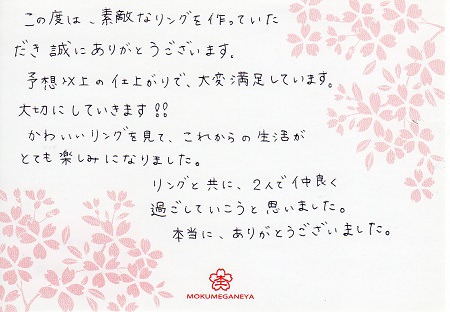 この度は、素敵なリングを作っていた
だき誠にありがとうございます。
予想以上の仕上がりで、大変満足しています。
大切にしていきます!!
かわいいリングを見て、これからの生活が
とても楽しみになりました。
リングと共に、2人で仲良く
過ごしていこうと思いました。
本当に、ありがとうございました。
MOKUMEGANEYA